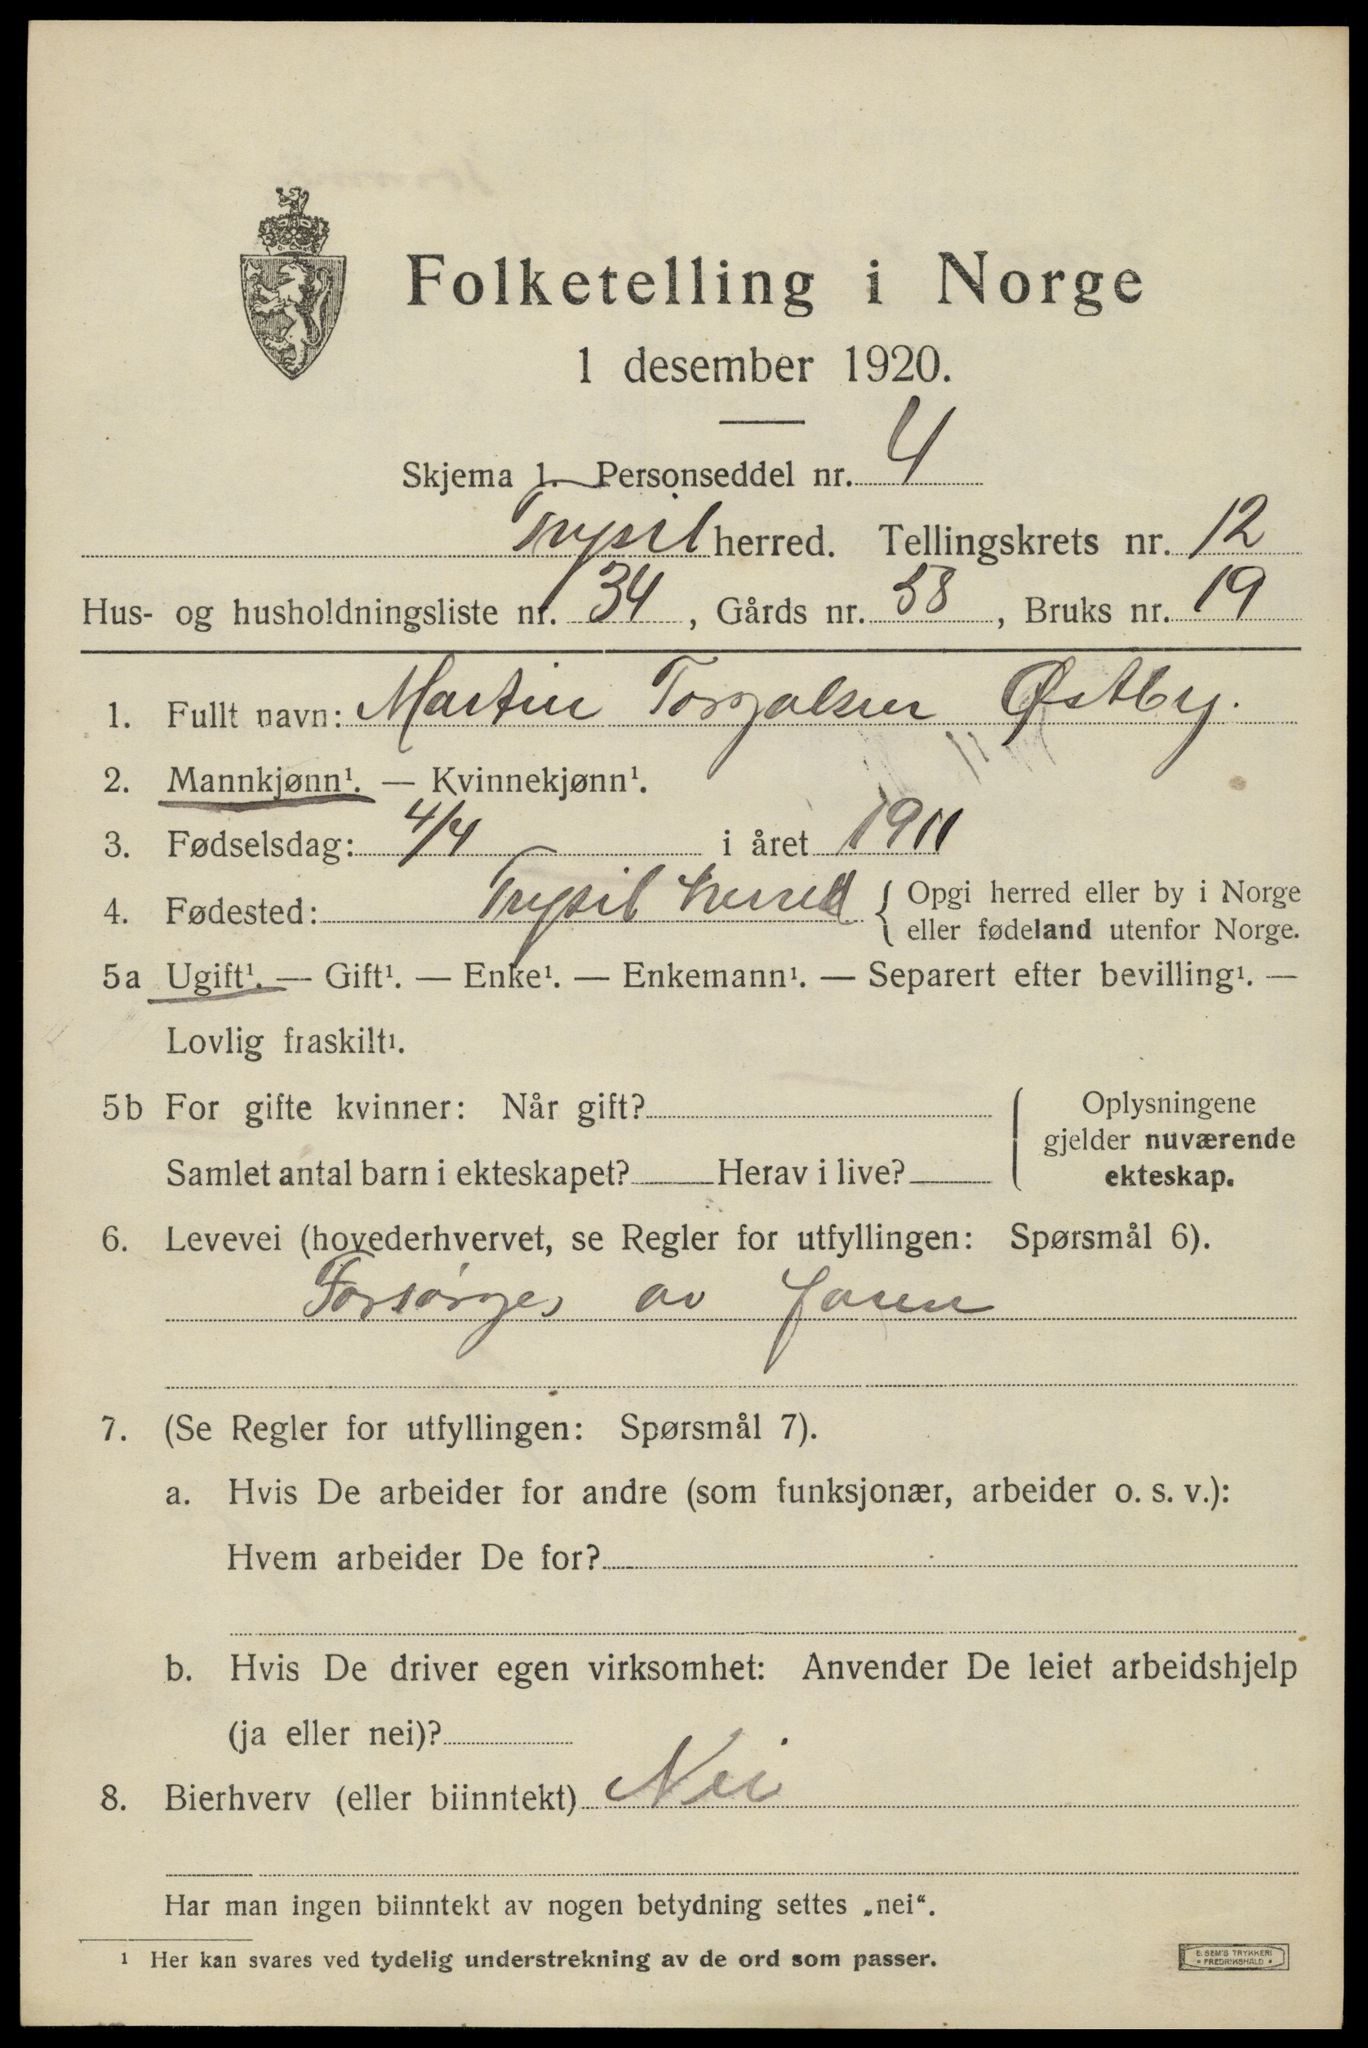 Folketelling i Norge
1 desember 1920.
Skjema 1. Personseddel nr. 4
Trysil herred. Tellingskrets nr. 12
Hus- og husholdningsliste nr. 34, Gårds nr. 58, Bruks nr. 19
1. Fullt navn: Martin Torgalsen Østby.
2. Mannkjønn¹. — Kvinnekjønn¹.
3. Fødselsdag: 4/4 i året 1911
4. Fødested: Trysil herred { Opgi herred eller by i Norge
eller fødeland utenfor Norge.
5a Ugift¹. — Gift¹. — Enke¹. — Enkemann¹. — Separert efter bevilling¹. —
Lovlig fraskilt¹.
5b For gifte kvinner: Når gift? ( Oplysningene
gjelder nuværende
Samlet antal barn i ekteskapet? Herav i live? ekteskap.
6. Levevei (hovederhvervet, se Regler for utfyllingen: Spørsmål 6).
Forsørges av faren
7. (Se Regler for utfyllingen: Spørsmål 7).
a. Hvis De arbeider for andre (som funksjonær, arbeider o. s. v.):
Hvem arbeider De for?
b. Hvis De driver egen virksomhet: Anvender De leiet arbeidshjelp
(ja eller nei)?
8. Bierhverv (eller biinntekt) Nei
Har man ingen biinntekt av nogen betydning settes „nei“.
¹ Her kan svares ved tydelig understrekning av de ord som passer.
E. SEM'S TRYKKERI
• FREDRIKSHALD •